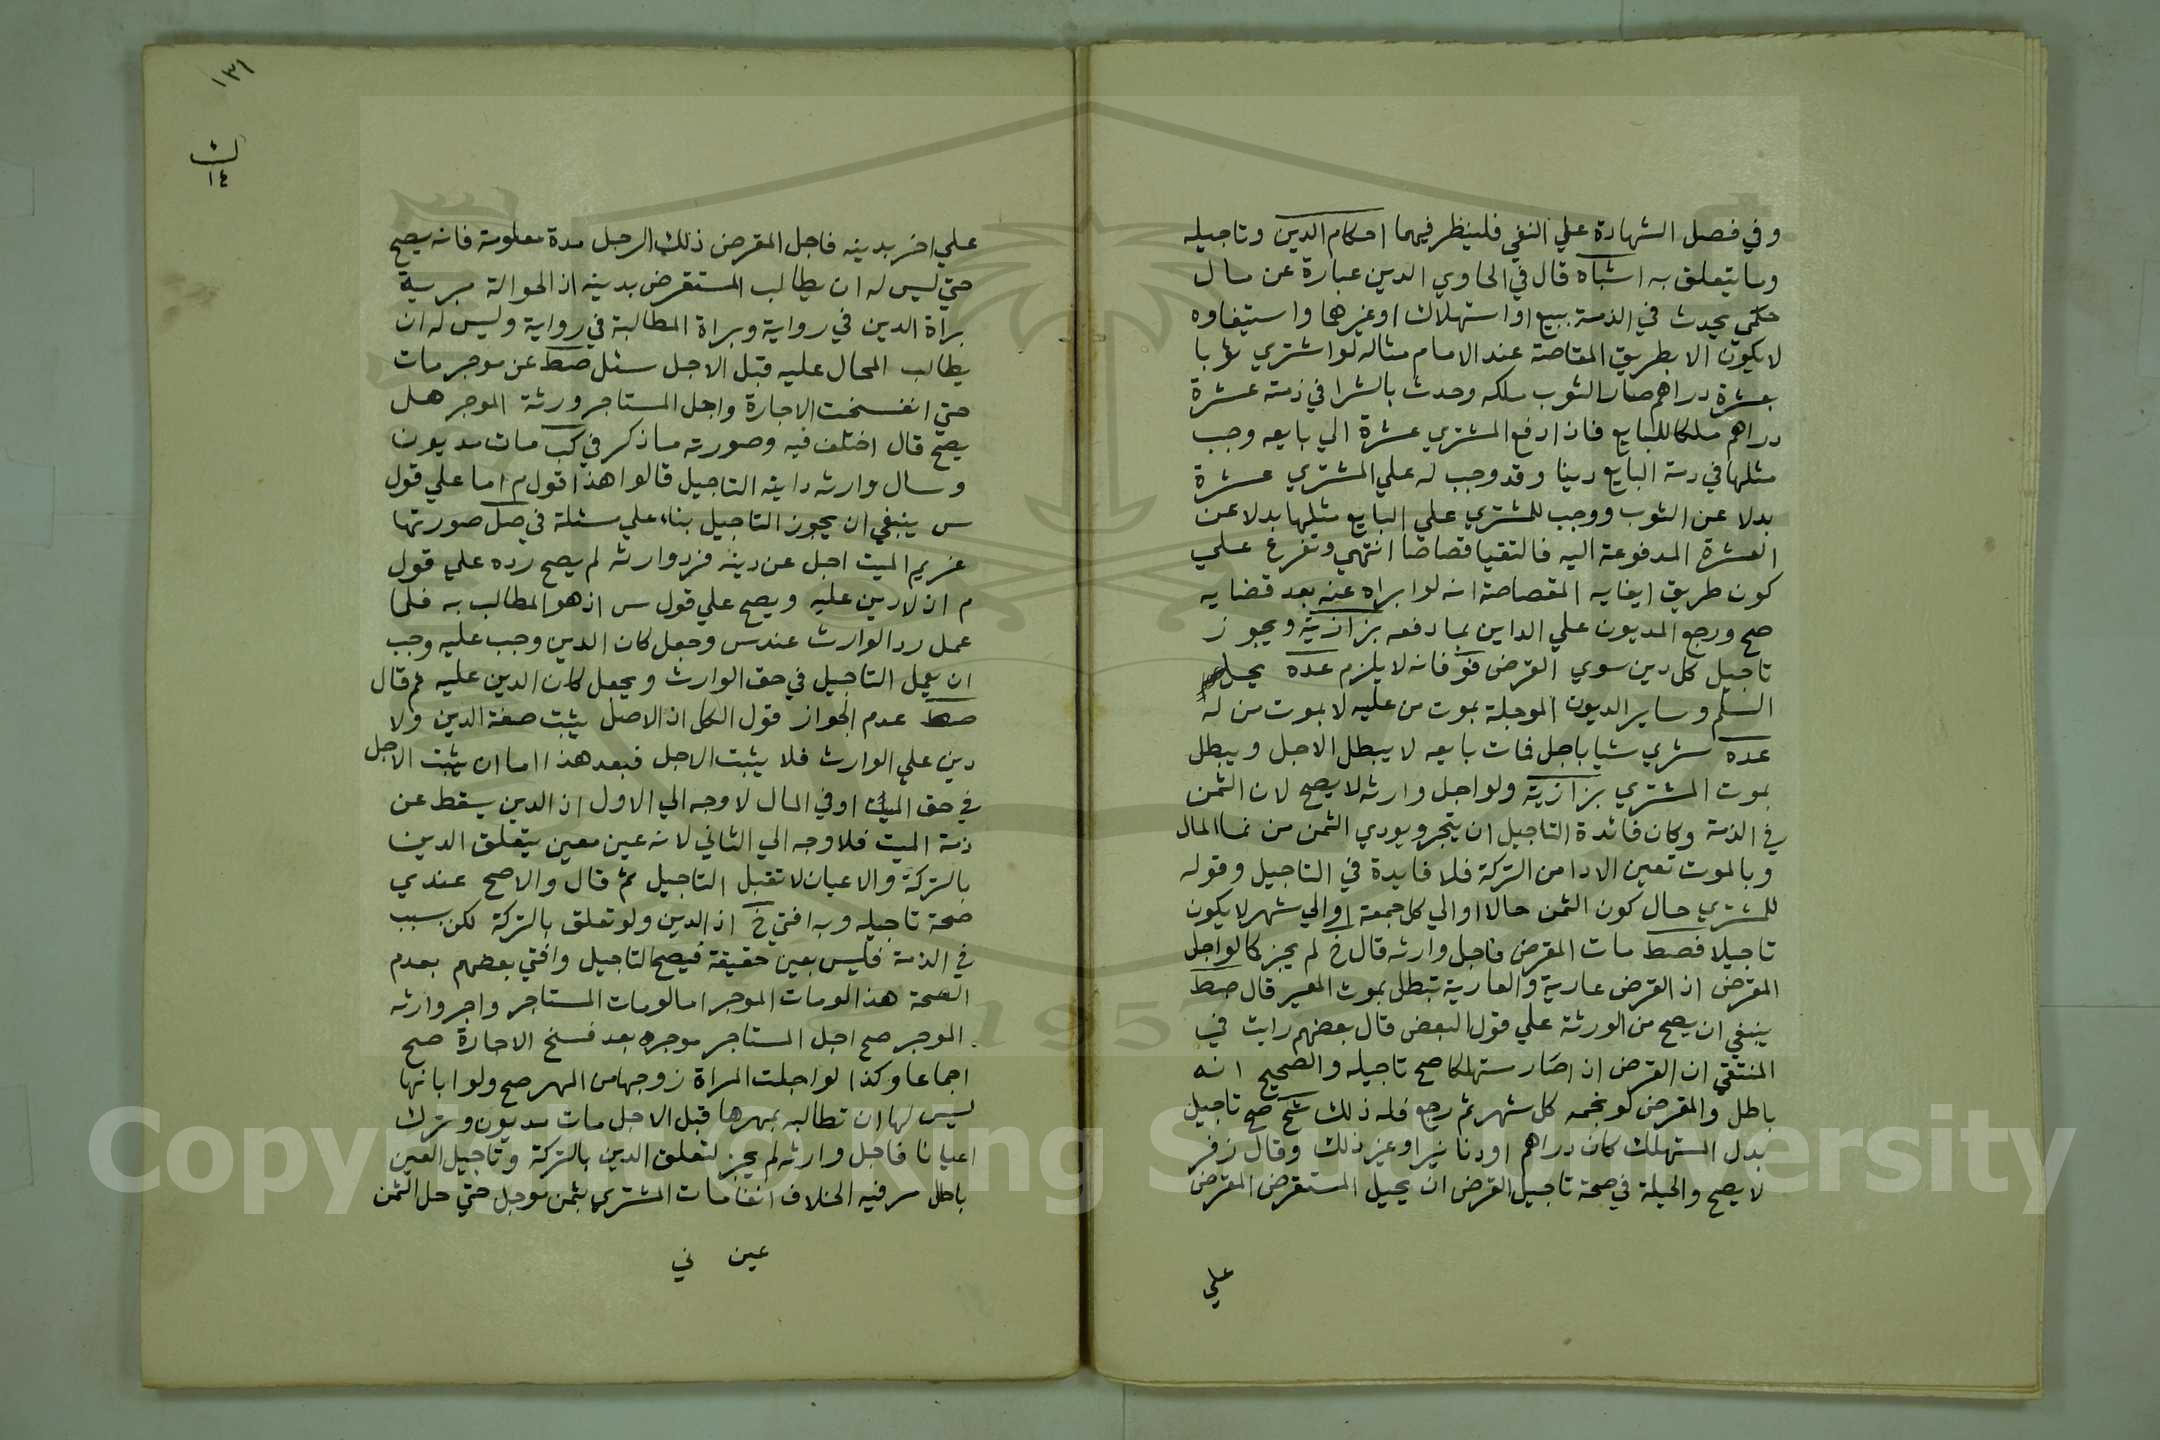 وفي فصل الشهادة علي النفي فلينظر فيهما احكام الدين وتاجيله
وما يتعلق به اشباه قال في الحاوي الدين عبارة عن مال
حكمي يحدث في الذمة ببيع او استهلاك او غيرهما واستيفاوه
لا يكون الا بطريق المقاصة عند الامام مثاله لو اشتري ثوبا
بعشرة دراهم صار الثوب ملكه وحدث بالشرا في ذمته عشرة
دراهم ملكا للبايع فاذا دفع المشتري عشرة الي بايعه وجب
مثلها في ذمة البايع دينا وقد وجب له علي المشتري عشرة
بدلا عن الثوب ووجب للمشتري علي البايع مثلها بدلا عن
العشرة المدفوعة اليه فالتقيا قصاصا انتهي وتفرع علي
كون طريق ايفايه المقصاصة انه لو ابراه عنه بعد قضايه
صح ورجع المديون علي الداين بما دفعه بزازية ويجوز
تاجيل كل دين سوي القرض فو فانه لا يلزم عده يحل
السلم وساير الديون الموجلة بموت من عليه لا بموت من له
عده شري شيا باجل فمات بايعه لا يبطل الاجل ويبطل
بموت المشتري بزازية ولو اجل وارثه لا يصح لان الثمن
في الذمة وكان فائدة التاجيل ان يتجر ويودي الثمن من نما المال
وبالموت تعين الادا من التركة فلا فايدة في التاجيل وقوله
للمشتري حال كون الثمن حالا او الي كل جمعة او الي شهر لا يكون
تاجيلا فصط مات المقرض فاجل وارثه قال خ لم يجز كما لو اجل
المقرض اذ القرض عارية والعارية تبطل بموت المعير قال صط
ينبغي ان يصح من الورثة علي قول البعض قال بعضهم رايت في
المنتقي ان القرض اذا صار مستهلكا صح تاجيله والصحيح انه
باطل والمقرض لو نجمه كل شهر ثم رجع فله ذلك شح صح تاجيل
بدل المستهلك كان دراهم او دنانيرا وغير ذلك وقال زفر
لا يصح والحيلة في صحة تاجيل القرض ان يحيل المستقرض المقرض
علي
١٣١
١٤
علي اخر بدينه فاجل المقرض ذلك الرجل مدة معلومة فانه يصح
حتي ليس له ان يطالب المستقرض بدينه اذ الحوالة مبرية
براة الدين في رواية وبراة المطالبة في رواية وليس له ان
يطالب المحال عليه قبل الاجل سئل صط عن موجر مات
حتي انفسخت الاجارة واجل المستاجر ورثة الموجر هل
يصح قال اختلف فيه وصورته ما ذكر في كب مات مديون
وسال وارثه داينه التاجيل قالوا هذا قول م اما علي قول
س ينبغي ان يجوز التاجيل بناء علي مسئلة في صل صورتها
غريم الميت اجل عن دينه فرد وارثه لم يصح رده علي قول
م اذ لا دين عليه ويصح علي قول س اذ هو المطالب به فلما
عمل رد الوارث عند س وجعل كان الدين وجب عليه وجب
ان يعمل التاجيل في حق الوارث ويجعل كان الدين عليه ثم قال
صط عدم الجواز قول الكل اذ الاصل يثبت صفة الدين ولا
دين علي الوارث فلا يثبت الاجل فبعد هذا اما ان يثبت الاجل
في حق الميت او في المال لا وجه الي الاول اذ الدين يسقط عن
ذمة الميت فلا وجه الي الثاني لانه عين معين يتعلق الدين
بالتركة والاعيان لا تقبل التاجيل ثم قال والاصح عندي
صحة تاجيله وبه افتي خ اذ الدين ولو تعلق بالتركة لكن بسبب
في الذمة فليس بعين حقيقة فيصح التاجيل وافتي بعضهم بعدم
الصحة هذا لو مات الموجر اما لو مات المستاجر واجر وارثه
الموجر صح اجل المستاجر موجره بعد فسخ الاجارة صح
اجماعا وكذا لو اجلت المراة زوجها من المهر صح ولو ابانها
ليس لها ان تطالبه بمهرها قبل الاجل مات مديون وترك
اعيانا فاجل وارثه لم يجز لتعلق الدين بالتركة وتاجيل العين
باطل مر فيه الخلاف انفا مات المشتري بثمن موجل حتي حل الثمن
عين ني
Copyright © King Saud University
1957